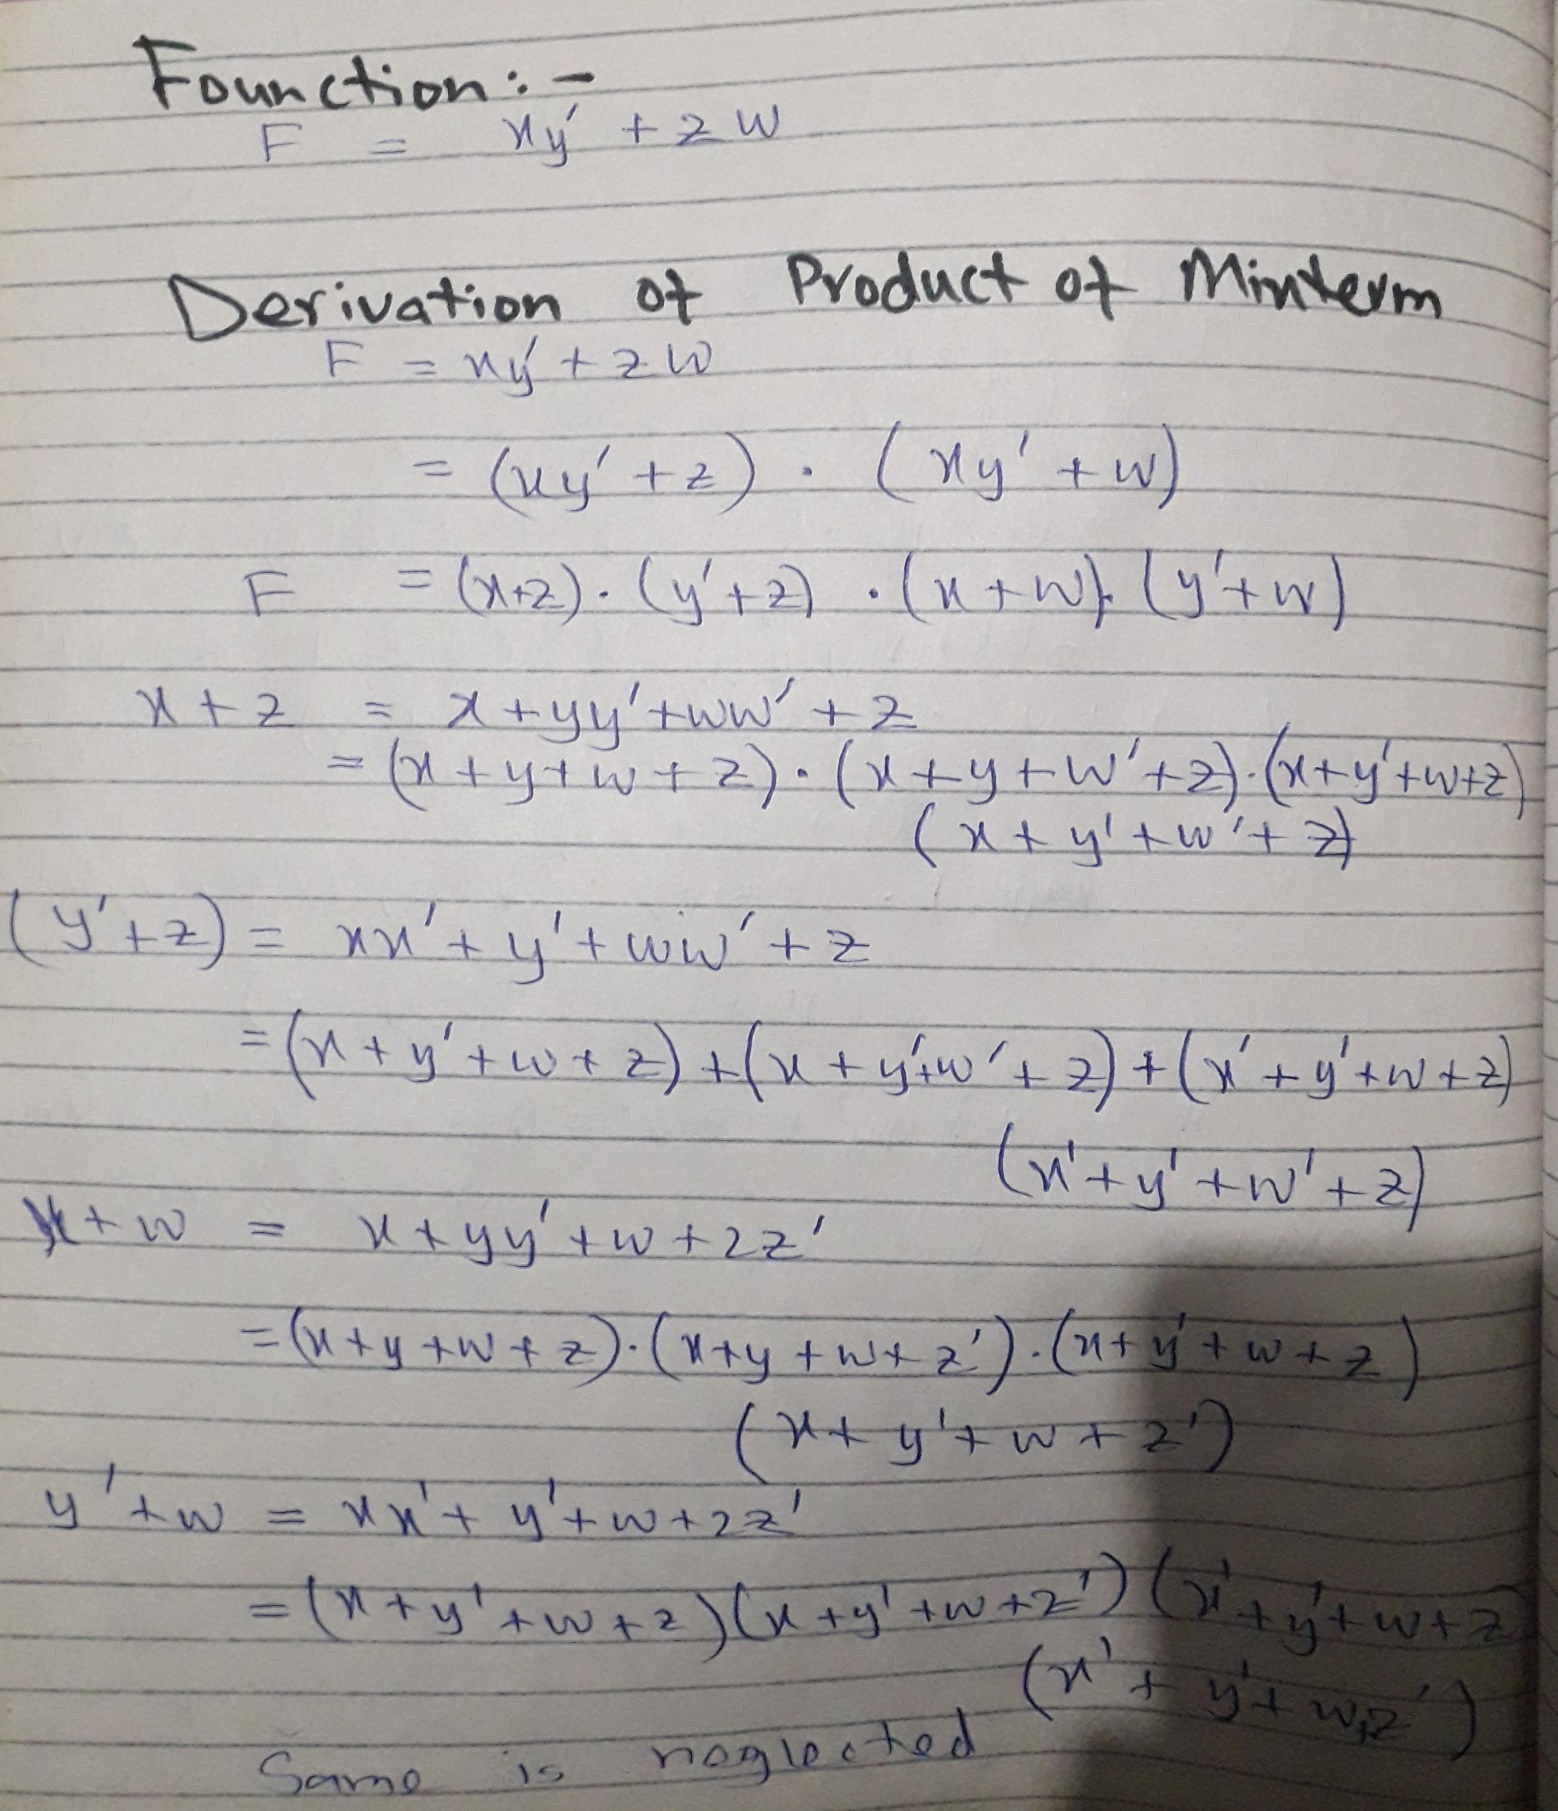 Founction:-
F = xy' + zw
Derivation of Product of Minterm
F = xy' + zw
= (xy' + z) . (xy' + w)
F = (x+z) . (y'+z) . (x+w). (y'+w)
x + z = x + yy' + ww' + z
= (x + y + w + z) . (x + y + w' + z) . (x + y' + w + z)
(x + y' + w' + z)
(y' + z) = xx' + y' + ww' + z
= (x + y' + w + z) + (x + y' + w' + z) + (x' + y' + w + z)
(x' + y' + w' + z)
x + w = x + yy' + w + zz'
= (x + y + w + z) . (x + y + w + z') . (x + y' + w + z)
(x + y' + w + z')
y' + w = xx' + y' + w + zz'
= (x + y' + w + z) (x + y' + w + z') (x' + y' + w + z
(x' + y' + w + z')
Same is neglected